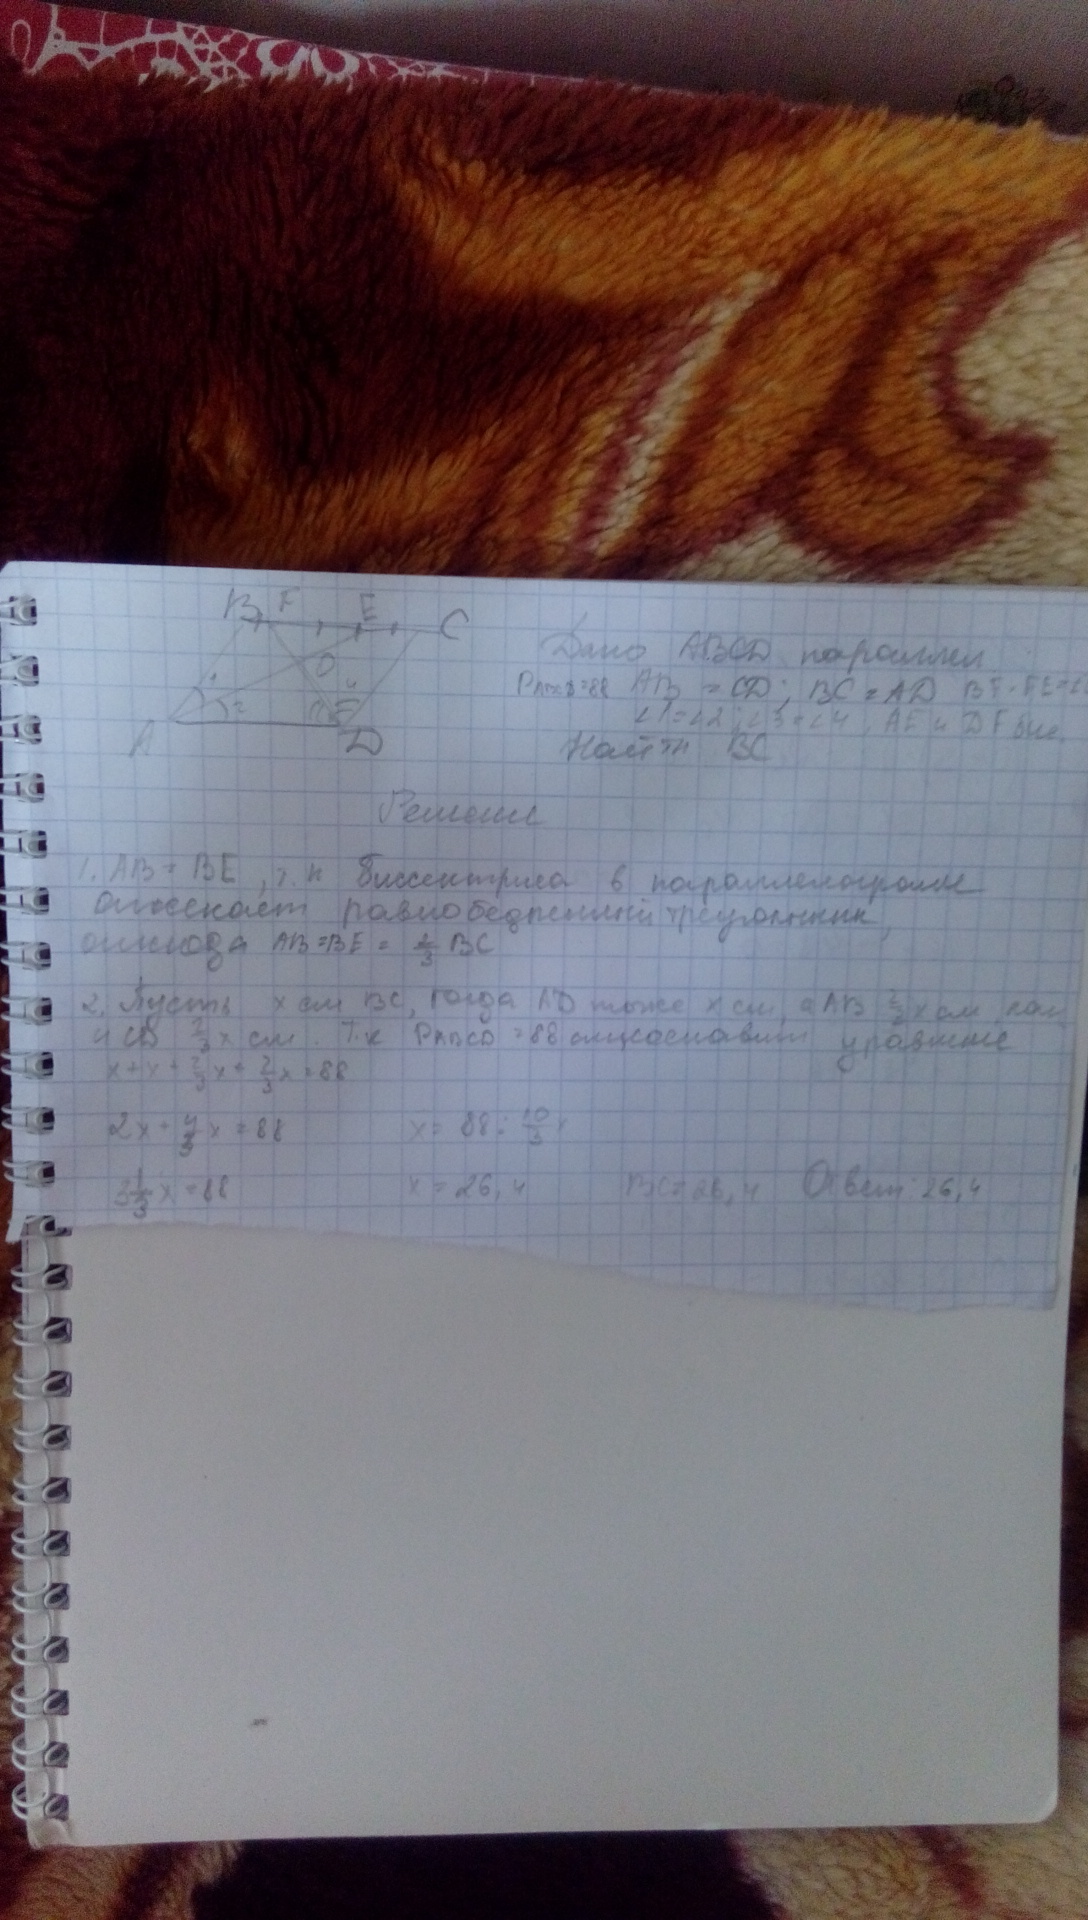 B F E C
О
1 2 3 4
A D
Дано ABCD параллел.
PABCD=88 AB = CD; BC = AD BF=FE=
∠1=∠2; ∠3=∠4, AE и DF бис.
Найти BC
Решение
1. AB = BE, т.к биссектриса в параллелограмме
отсекает равнобедренный треугольник,
отсюда AB=BE= 2/3 BC
2. Пусть x см BC, тогда AD тоже x см, а AB 2/3 x см, как
и CD 2/3 x см. Т.к PABCD = 88 уравнение
x + x + 2/3 x + 2/3 x = 88
2x + 4/3 x = 88 x = 88 : 10/3
3 1/3 x = 88 x = 26,4 BC = 26,4 Ответ: 26,4